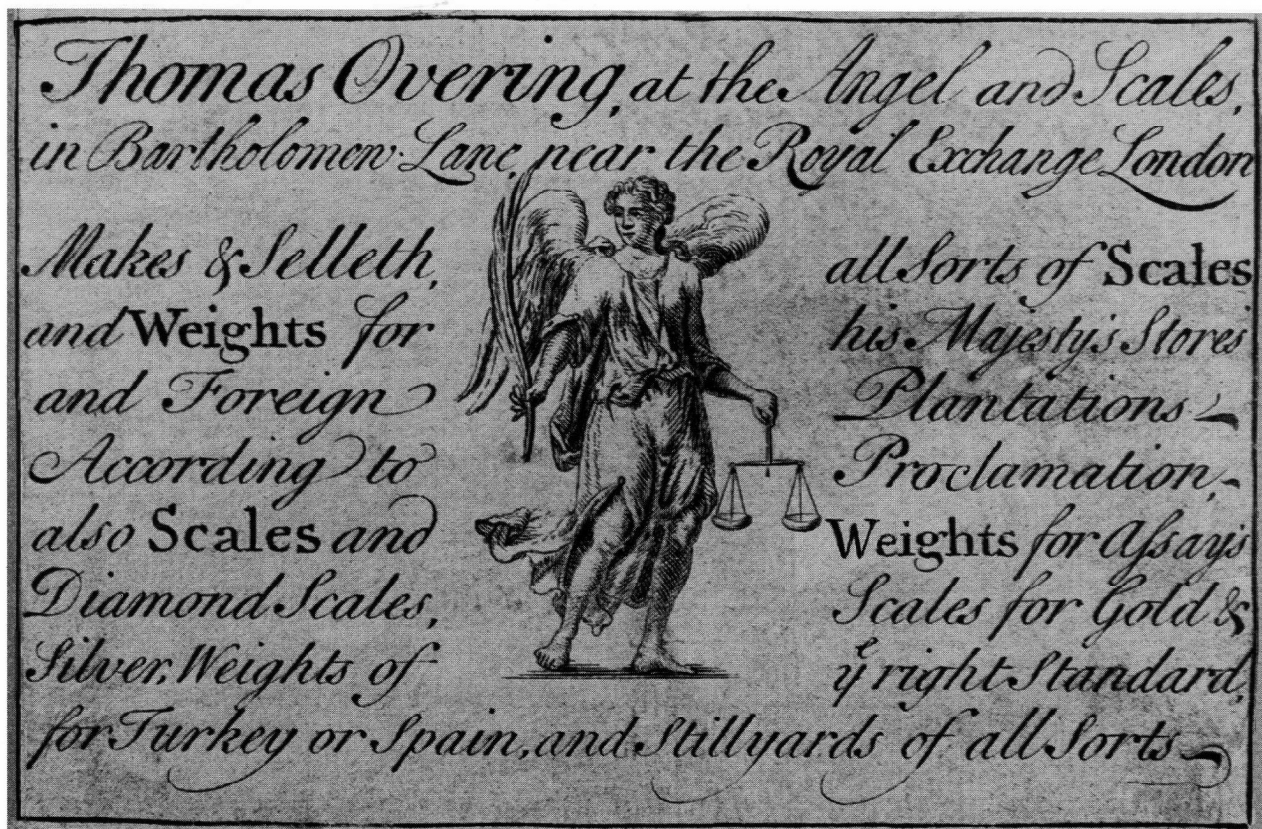 Thomas Overing, at the Angel and Scales,
in Bartholomew Lane, near the Royal Exchange London
Makes & Selleth, all Sorts of Scales
and Weights for his Majesty's Stores
and Foreign Plantations
According to Proclamation,
also Scales and Weights for Aſsays
Diamond Scales, Scales for Gold &
Silver, Weights of yͤ right Standard,
for Turkey or Spain, and Stillyards of all Sorts